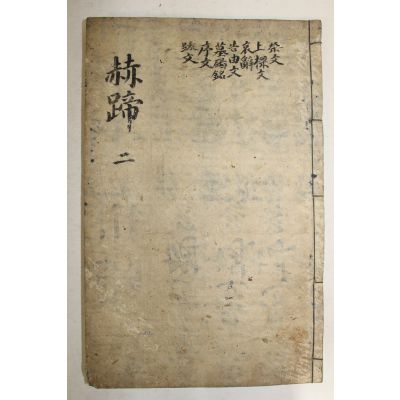 祭文
上樑文
哀辭
告由文
墓碣銘
序文
跋文
赫蹄
二